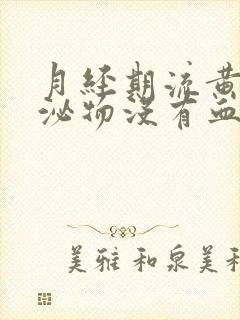 月经期流黄
泌物没有血
美雅和泉美利